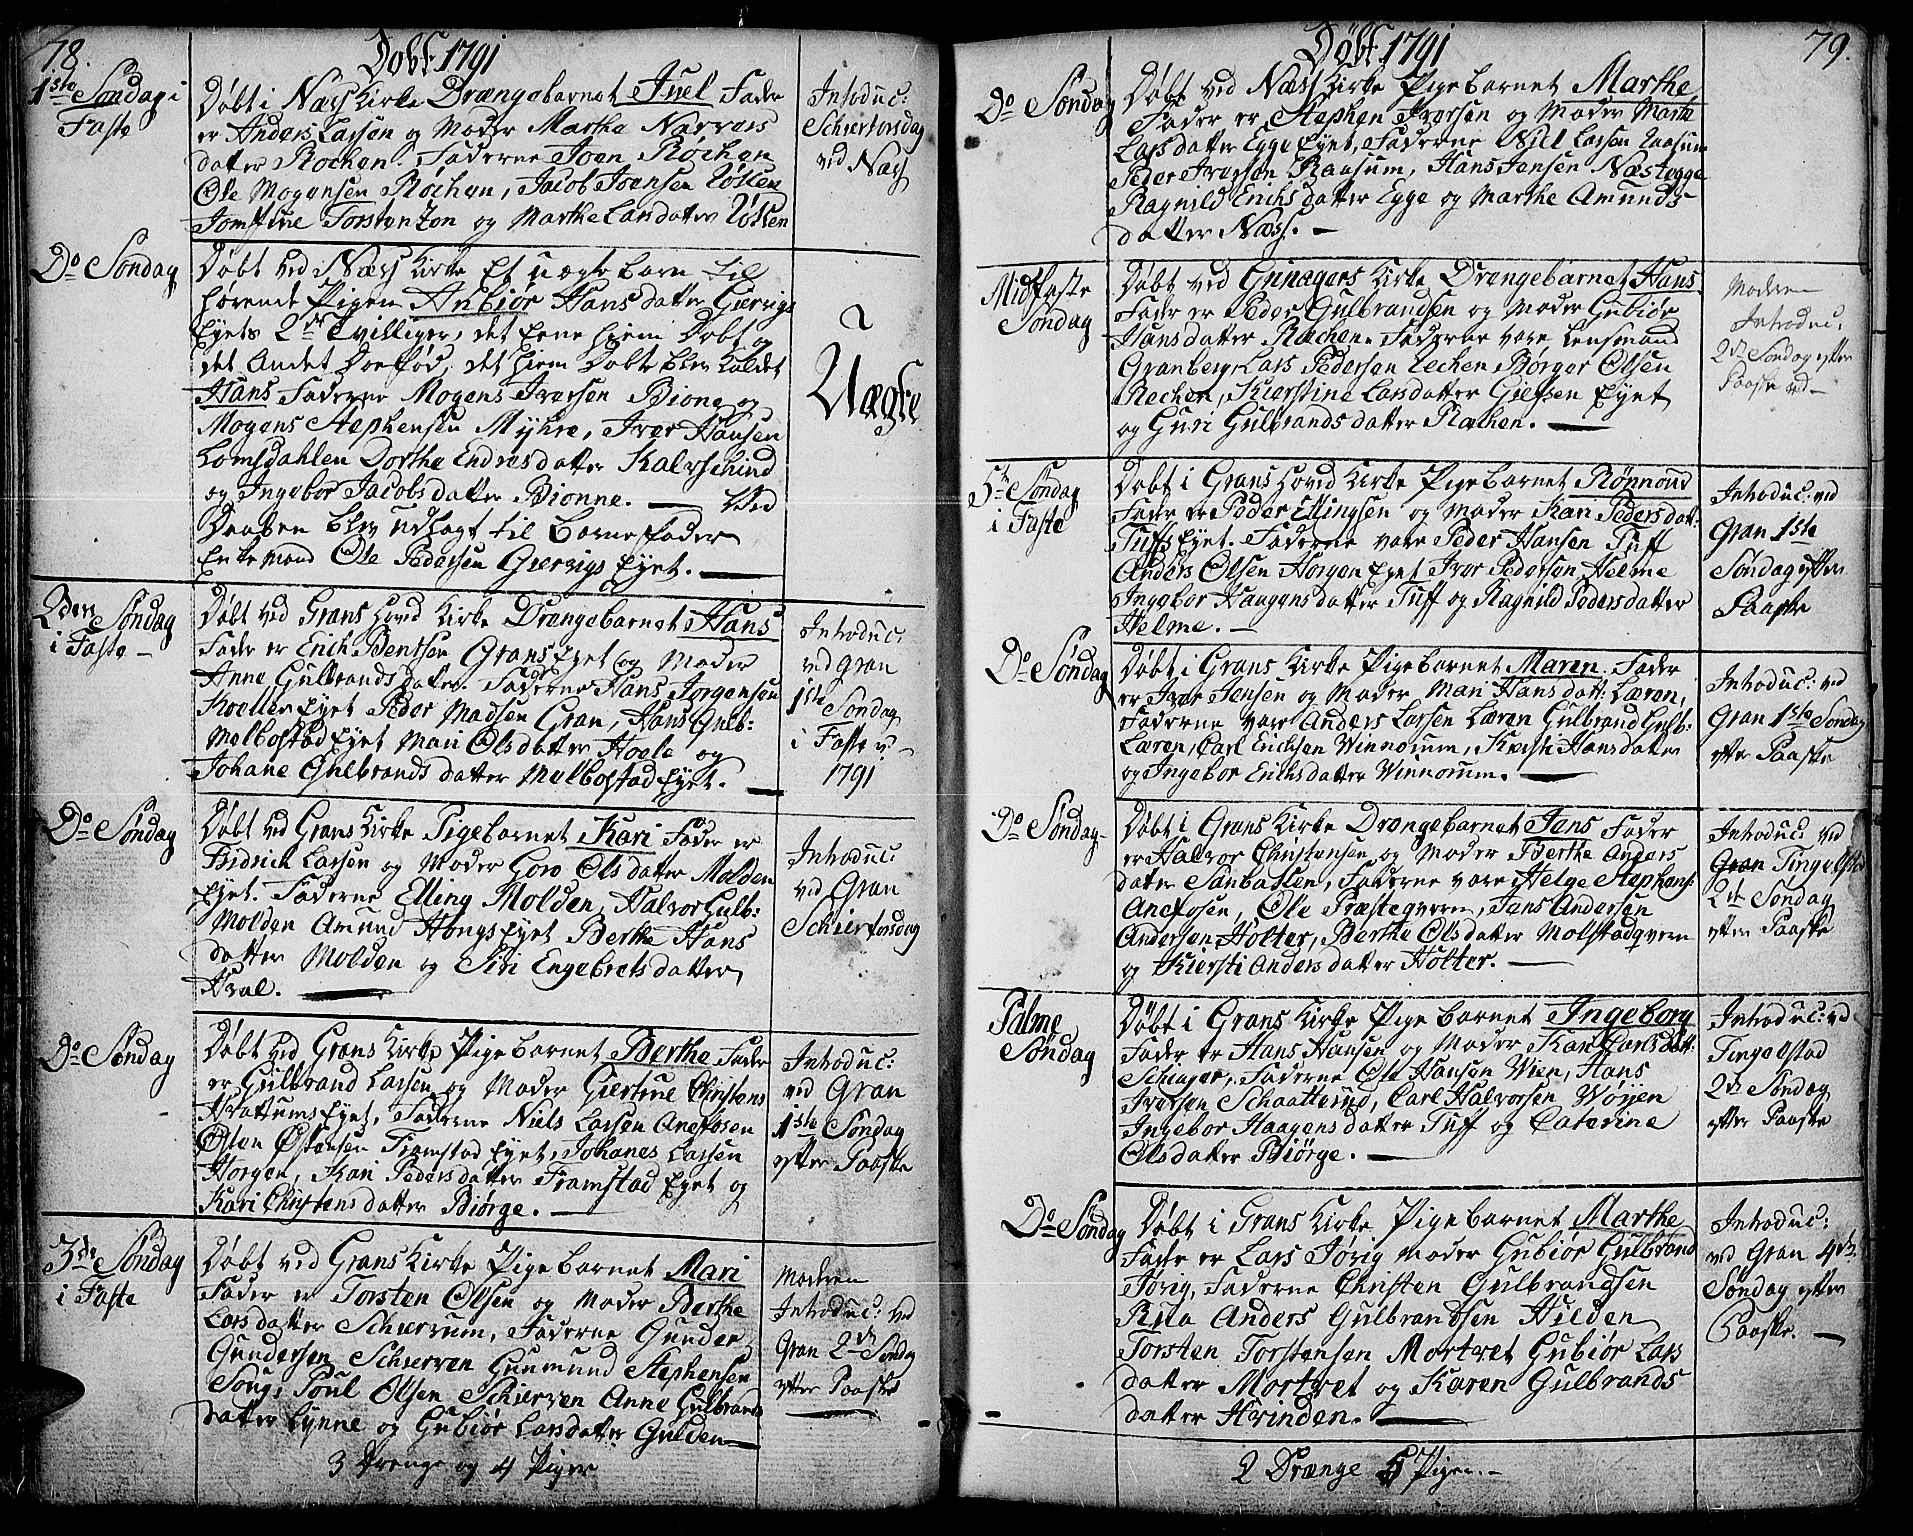 78.
Døbt 1791
1ste Søndag i
Faste
Døbt i Næss Kirke Drængebarnet Juel Fader
er Anders Larsen og Moder Marthe Narvers
datter Røchen. Fadderne Joen Røchen
Ole Mogensen Røchen, Jacob Joensen Løsken
Torstenzon og Marthe Larsdatter Løsken
Introduc:
Schiertorsdag
ved Næss
Do Søndag
Døbt ved Næss Kirke Et uægte Barn til
hørende Pigen Anbiør Hansdatter Giervigs
Eyets 2de Tvillinger, det Eene hiem Døbt og
det Andet Doefød, det hiem Døbte blev kaldet
Hans Faderne Mogens Iversen Bione og
Mogens Stephensen Myhre, Iver Hansen
Lomsdahlen Dorthe Endresdatter Kalvschind
og Ingebor Jacobsdatter Bionne. — Ved
Daaben blev udlagt til Barnefader
Enkemand Ole Pedersen Giervigs Eyet.
Uægte
2den Søndag
i Faste
Døbt ved Grans Hoved Kirke Drængebarnet Hans
Fader er Erich Bentsen Grans Eyet og Moder
Anne Gulbrandsdatter. Fadderne Hans Jørgensen
Koller Eyet Peder Madsen Gran, Hans Gulb:
Melbostad Eyet Mari Olsdatter Hoele og
Johane Gulbrandsdatter Melbostad Eyet.
Introduc:
ved Gran
1ste Søndag
i Faste
1791
Do Søndag
Døbt ved Grans Kirke Pigebarnet Kari Fader er
Fridrich Larsen og Moder Goro Olsdatter Molden
Eyet. Fadderne Elling Molden, Halvor Gulb:
Molden Amund Hongs Eyet Berthe Hans
datter Molden og Siri Engebretsdatter
Hval.
Introduc:
ved Gran
Schiertorsdag
Do Søndag
Døbt ved Grans Kirke Pigebarnet Berthe Fader
er Gulbrand Larsen og Moder Giertine Christens
Hvattums Eyet, Fadderne Niels Larsen Anefosen
Østen Østensen Framstad Eyet, Johanes Larsen
Horgen, Kari Pedersdatter Framstad Eyet og
Kari Christensdatter Biørge.
Introduc:
ved Gran
1ste Søndag
efter Paaske
3de Søndag
i Faste
Døbt ved Grans Kirke Pigebarnet Mari
Fader er Torsten Olsen og Moder Berthe
Larsdatter Schierrum, Fadderne Gunder
Gundersen Schierven Gunmund Stephensen
Song, Poul Olsen Schierven Anne Gulbrands
datter Lynne og Gubiør Larsdatter Gulden
Moderen
Introduc: ved
Gran 2den Søndag
efter Paaske
3 Drenge og 4 Piger
79.
Døbt 1791
Do Søndag
Døbt ved Næss Kirke Pigebarnet Marthe
Fader er Stephen Iversen og Moder Marte
Larsdatter Egge Eyet, Faderne Niel Larsen Raasum
Peder Iversen Raasum, Hans Jensen Næstegge
Ragnild Erichsdatter Egge og Marthe Amunds
datter Næss. —
Midfaste
Søndag
Døbt ved Grinagers Kirke Drængebarnet Hans
Fader er Peder Gulbrandsen og Moder Gubiør
Hansdatter Ræchen. Fadderne vare Lensmand
Granberg, Lars Pedersen Lechen Børger Olsen
Rechen, Kierstine Larsdatter Giefsen Eyet
og Guri Gulbrandsdatter Ræchen.
Moderen
Introduc:
2de Søndag efter
Paaske ved
5te Søndag
i Faste
Døbt i Grans Hoved Kirke Pigebarnet Rønnoug
Fader er Peder Ellingsen og Moder Kari Pedersdatt:
Tuffs Eyet. Fadderne vare Peder Hansen Tuff
Anders Olsen Horgen Eyet Iver Pedersen Helme
Ingebor Haagensdatter Tuff og Ragnild Pedersdatter
Helme. —
Introduc: ved
Gran 1ste
Søndag efter
Paaske
Do Søndag
Døbt i Grans Kirke Pigebarnet Maren Fader
er Iver Jensen og Moder, Mari Hansdatt: Læren,
Fadderne vare Anders Larsen Læren Gulbrand Gulb:
Læren, Carl Erichsen Winnorum, Kiersti Hansdatter
og Ingebor Erichsdatter Winnorum.
Introduc: ved
Gran 1ste Søndag
efter Paaske
Do Søndag
Døbt i Grans Kirke Drængebarnet Jens Fader
er Halvor Christensen og Moder Berthe Anders
datter Sanbakken, Fadderne vare Helge Stephens:
Anefosen, Ole Præsteqvern, Jens Andersen
Andersen Holter, Berthe Olsdatter Molstadqvern
og Kiersti Andersdatter Holter. —
Introduc: ved
Gran Tingelstad
2de Søndag
efter Paaske
Palme
Søndag
Døbt i Grans Kirke Pigebarnet Ingeborg
Fader er Hans Hansen og Moder Kari Carlsdatt:
Schiager, Fadderne Ole Hansen Wien, Hans
Iversen Schaatterud, Carl Halvorsen Wøyen
Ingebor Haagensdatter Tuff og Caterine
Olsdatter Biørge.
Introduc: ved
Tingelstad
2de Søndag
efter Paaske
Do Søndag
Døbt i Grans Kirke Pigebarnet Marthe
Fader er Lars Jørig Moder Gubiør Gulbrand
Jørig, Fadderne Christen Gulbrandsen
Rua Anders Gulbrandsen Hilden
Torsten Torstensen Mortvet Gubiør Lars
datter Mortvet og Karen Gulbrands
datter Hvinden.
Introduc:
ved Gran 4de
Søndag efter
Paaske. —
2 Drænge 5 Piger. —